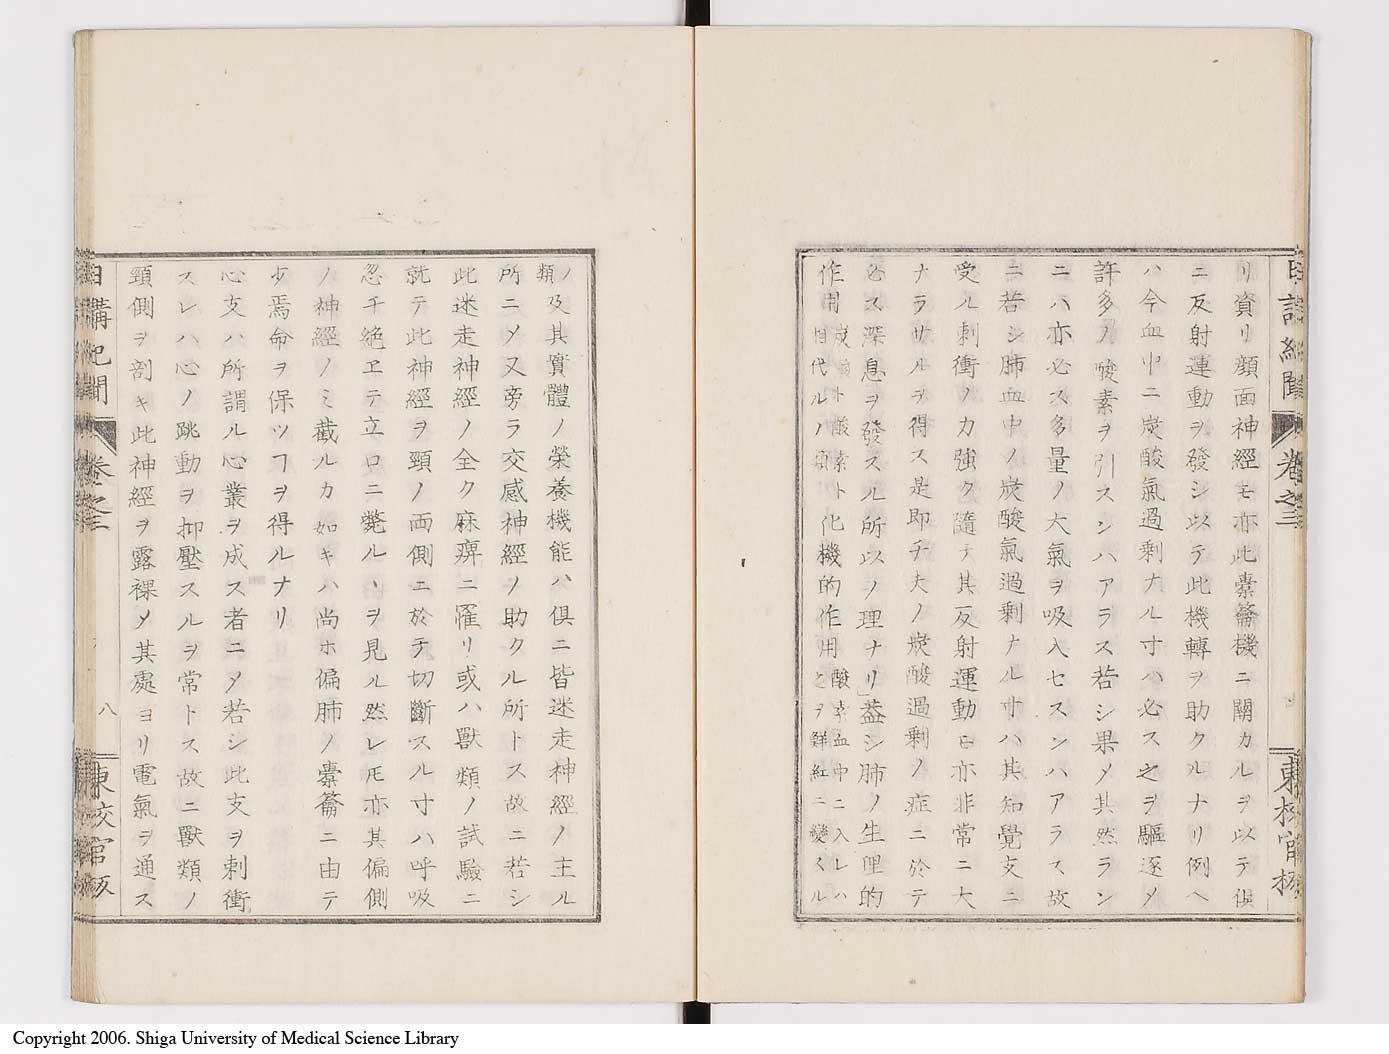 日講紀聞 卷之三 東校官板
リ資リ顔面神經モ亦此橐籥機ニ關カルヲ以テ俱
ニ反射運動ヲ發シ以テ此機轉ヲ助クルナリ例ヘ
ハ今血中ニ炭酸氣過剰ナル寸ハ必ス之ヲ驅逐メ
許多ノ酸素ヲ引スンハアラス若シ果メ其然ラン
ニハ亦必ス多量ノ大氣ヲ吸入セスンハアラス故
ニ若シ肺血中ノ炭酸氣過剰ナル寸ハ其知覺支ニ
受ル刺衝ノカ強ク隨テ其反射運動モ亦非常ニ大
ナラサルヲ得ス是即チ夫ノ炭酸過剰ノ症ニ於テ
必ス深息ヲ發スル所以ノ理ナリ」蓋シ肺ノ生理的
作用炭酸ト酸素ト相代ルハ須化機的作用酸素血中ニ入レハ之ヲ鮮紅ニ變スル
ノ類及其實體ノ榮養機能ハ俱ニ皆迷走神經ノ主ル
所ニメ又旁ラ交感神經ノ助クル所トス故ニ若シ
此迷走神經ノ全ク麻痹ニ罹リ或ハ獸類ノ試驗ニ
就テ此神經ヲ頸ノ両側ニ於テ切斷スル寸ハ呼吸
忽チ絶エテ立ロニ斃ルヽヲ見ル然レ𪜈亦其偏側
ノ神經ノミ截ルカ如キハ尚ホ偏肺ノ橐籥ニ由テ
少焉命ヲ保ツヿヲ得ルナリ
心支ハ所謂ル心叢ヲ成ス者ニメ若シ此支ヲ刺衝
スレハ心ノ跳動ヲ抑壓スルヲ常トス故ニ獸類ノ
頸側ヲ剖キ此神經ヲ露裸メ其處ヨリ電氣ヲ通ス
日講紀聞 卷之三 八 東校官板
Copyright 2006. Shiga University of Medical Science Library